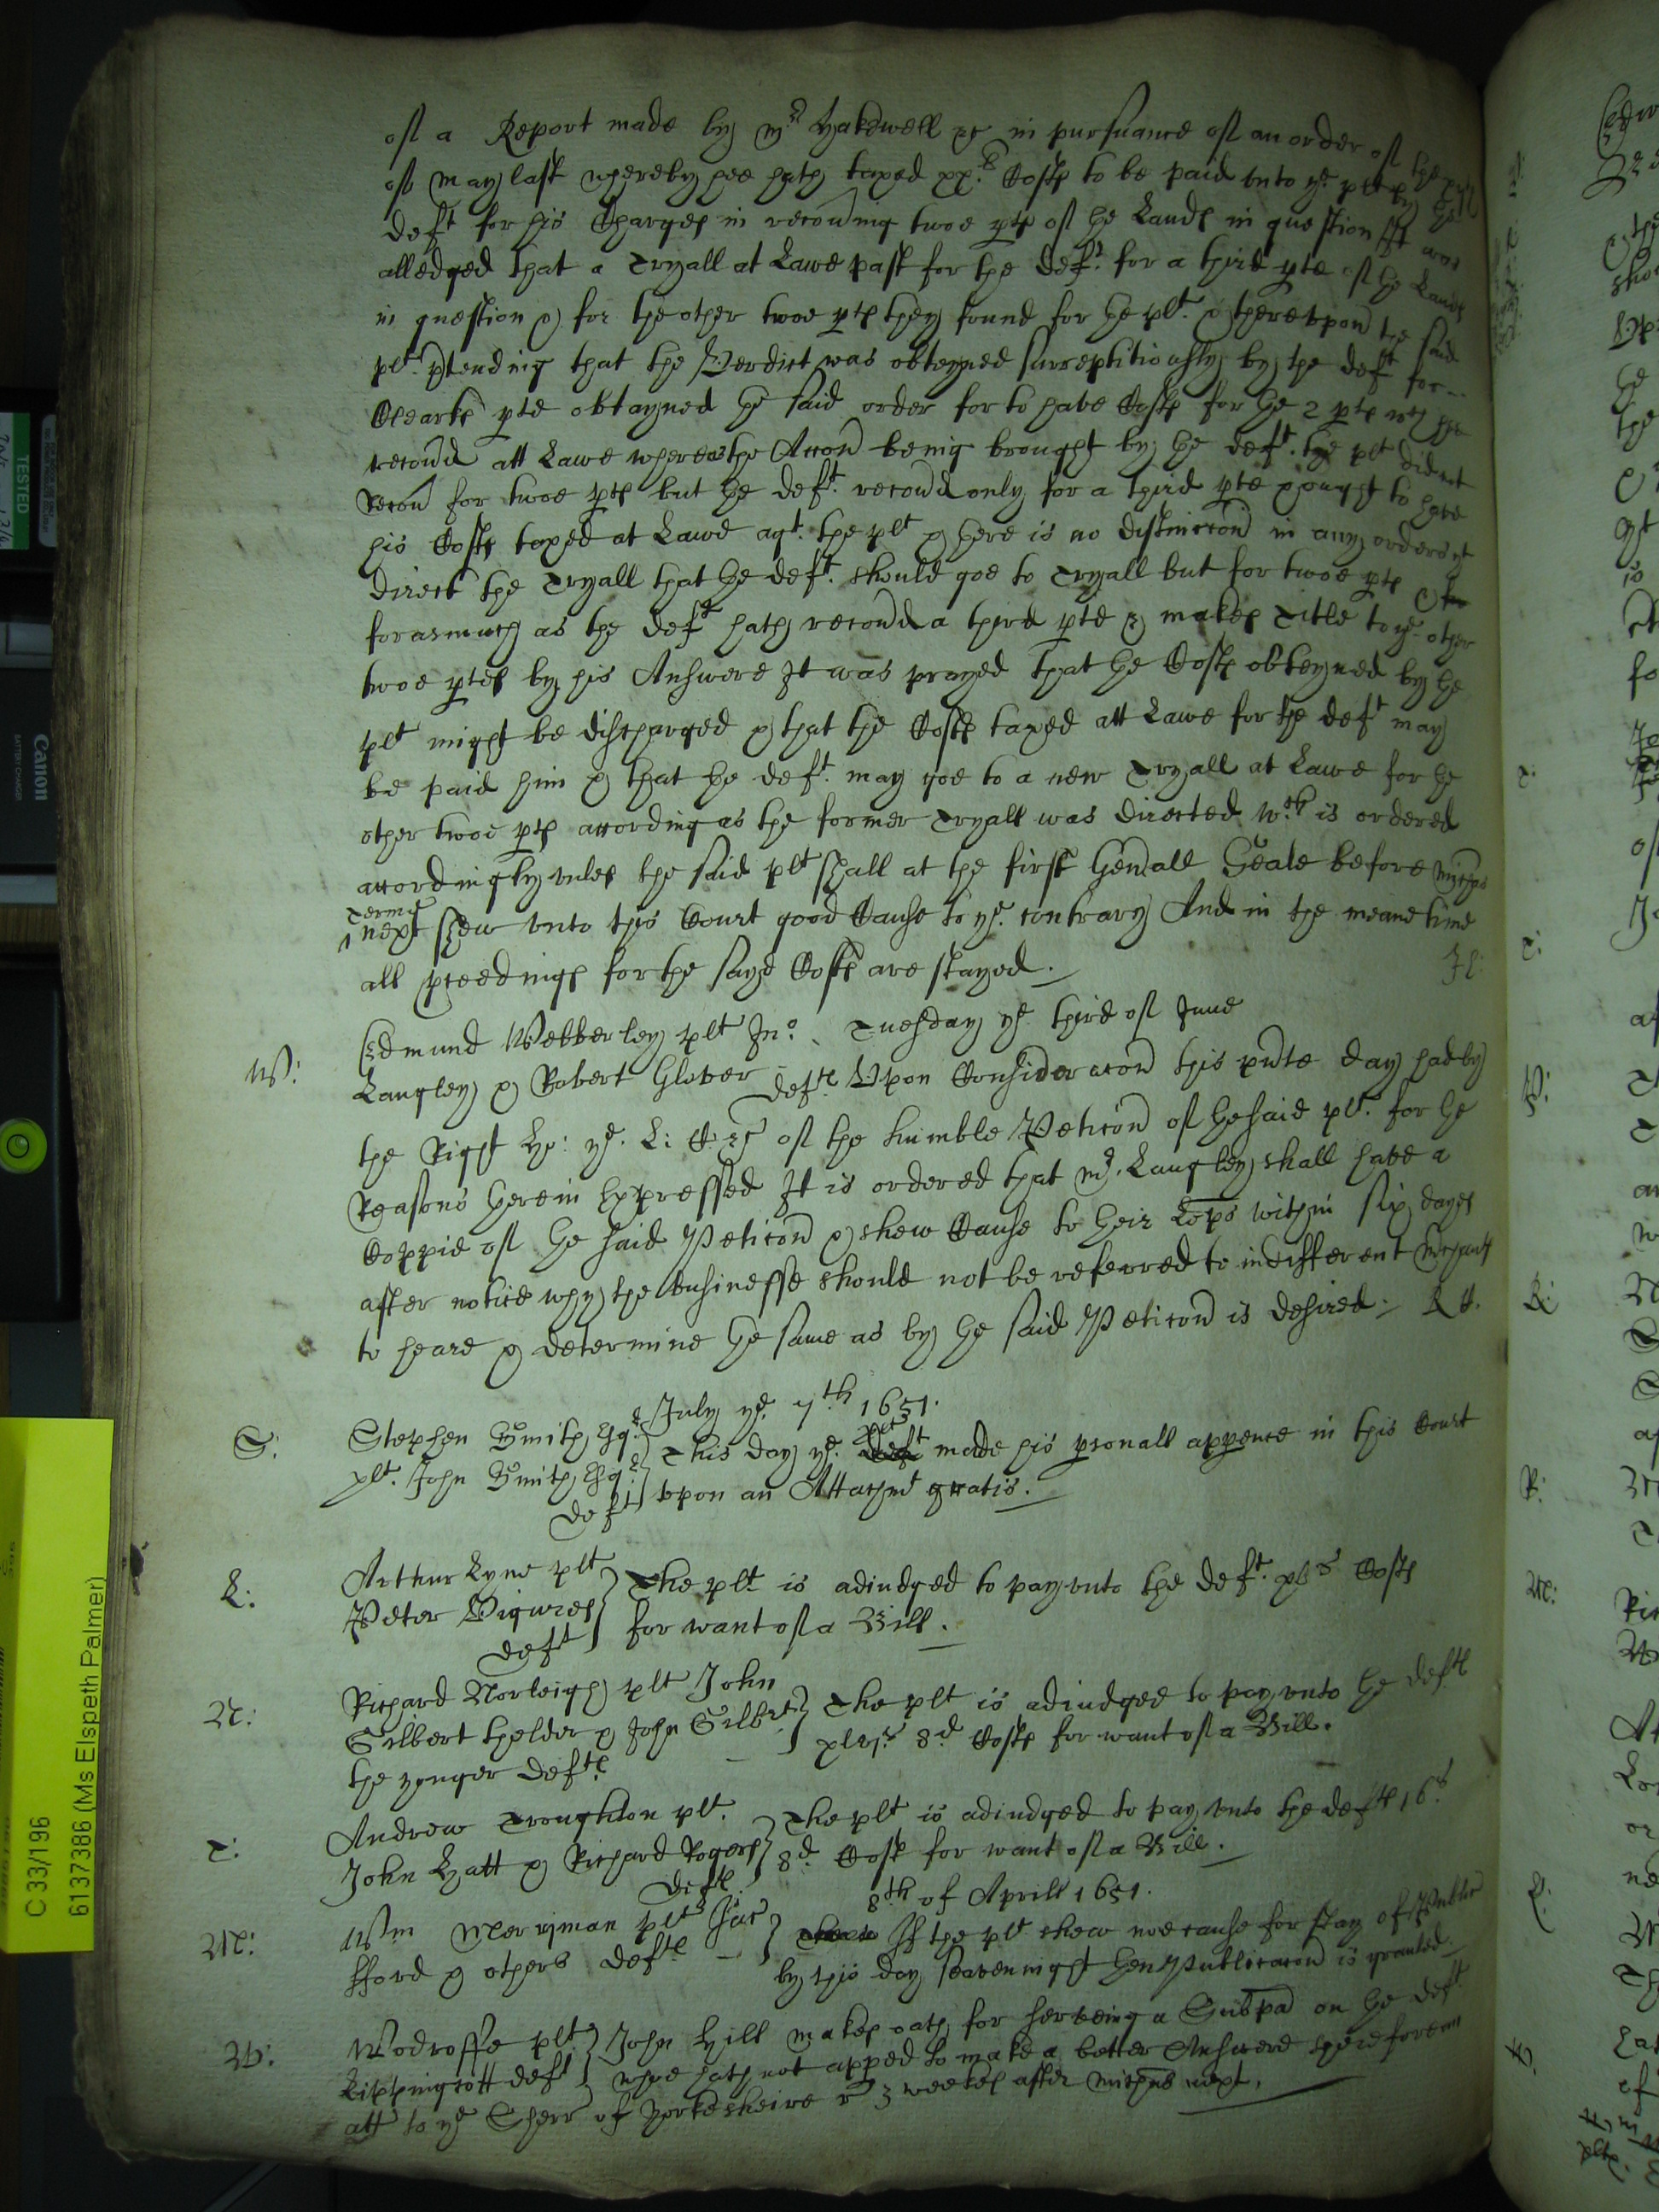 of a Report made by Mr Hakewell &c in pursuance of an order of the
of May last whereby hee hath taxed xx.li Costs to be paid vnto ye plt by the
deft for his Charges in recoũing twoe pts of the Lands in question It was
alledged that a Tryall at Lawe past for the deft. for a third pte of the Lands
in question & for the other twoe pts they found for the plt. & therevpon the said
plt. ptending that the Verdict was obteyned surreptitiously by the deft for
pte obtayned the said order for to have Costs for the 2 pts wch hee
recoũd att Lawe whereas the Accon being brought by the deft. the plt did not
Recoũ for twoe pts but the deft. recoũd only for a third pte & ought to have
his Costs taxed at Lawe agt. the plt & there is no distinccon in any orders yt
direct the Tryall that the deft. should goe to Tryall but for twoe pts &
forasmuch as the deft hath recoũd a third pte & makes Title to ye other
twoe ptes by his Answere It was prayed that the Costs obteyned by the
plt might be discharged & that the Costs taxed att Lawe for the deft may
be paid him & that the deft. may goe to a new Tryall at Lawe for the
other twoe pts according as the former Tryall was directed wch is ordered
accordingly vnles the said plt shall at the first Genall Seale before Michas
Terme
next shew vnto this Court good Cause to ye. contrary And in the meane time
all pceedings for the sayd Costs are stayed.
W:
Edmund Webberley plt Jno. Tuesday ye third of June
Langley & Robert Glover defts Vpon Consideracon this pnte day had by
the Right Ho: ye. L: C &c of the humble Peticon of the said plt. for the
Reasons therein Expressed It is ordered that Mr. Langley shall have a
Coppie of the said Peticon & shew Cause to their Lops within six dayes
after notice why the businesse should not be referred to indifferent Mchants
to heare & determine the same as by the said Peticon is desired. R C.
July ye. 7th 1651.
S:
Stephen Smith Esqr
plt. John Smith Esqr
deft
This day ye. plt deft made his psonall appence in this Court
vpon an Attachmt gratis.
L:
Arthur Lyne plt
Peter Vigures
deft
The plt is adiudged to pay vnto the deft. xls Costs
for want of a Bill.
N:
Richard Norleigh plt John
Gilbert thelder & John Gilbert
the yonger defts
The plt is adiudged to pay vnto the defts
8d Costs for want of a Bill.
T:
Andrew Troughton plt.
John Hatt & Richard Rogers
defts
The plt is adiudged to pay vnto the defts 16s
8d. Costs for want of a Bill.
8th of Aprill 1651.
M:
Wm Merryman plt
fford & others defts
If the plt shew noe cause for stay of Publicc
by this day seavennight then Publicacon is granted.
W:
Wodroffe plt
Lippingcott deft
John Hill makes oath for serveing a Subpa on the deft
whoe hath not apped to make a better Answere therefore an
att to ye Sherr of Yorkesheire r 3 weekes after Michas next.
C 33/196
6137386 (Ms Elspeth Palmer)
TESTED
Canon
BATTERY CHARGER